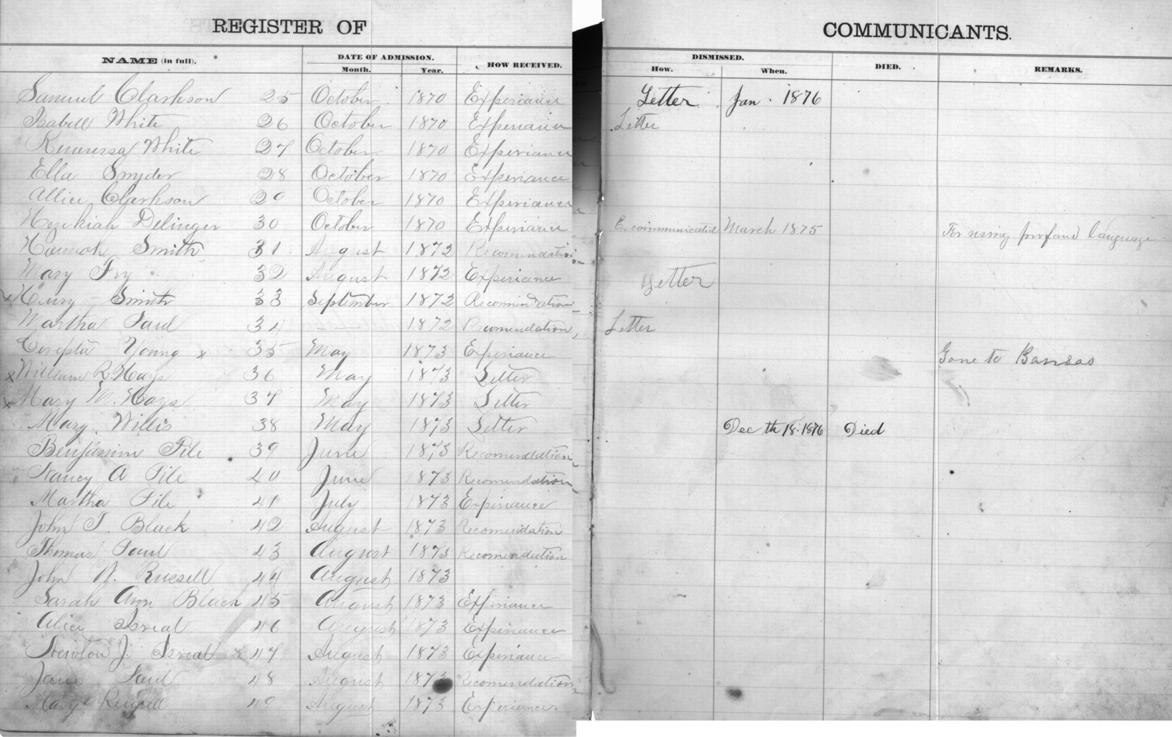 REGISTER OF COMMUNICANTS.
NAME (in full). DATE OF ADMISSION. HOW RECEIVED. DISMISSED. DIED. REMARKS.
Month. Year. How. When.
Samuel Clarkson 25 October 1870 Experiance Letter Jan. 1876
Isabell White 26 October 1870 Experiance Letter
White 27 October 1870 Experiance
Ella Snyder 28 October 1870 Experiance
Allice Clarkson 29 October 1870 Experiance
Hezikiah Delinger 30 October 1870 Experiance Excommunicated March 1875 For using profane language
Hannah Smith 31 August 1872 Recomendation
Mary Fry 32 August 1872 Experiance Letter
x Smith 33 September 1872 Recomendation
Martha 34 1872 Recomendation Letter
Young x 35 May 1873 Experiance Gone to Kansas
x William R Hays 36 May 1873 Letter
x Mary M. Hays 37 May 1873 Letter
Mary Willis 38 May 1873 Letter Dec th 18 1876 Died
Benjamin Pile 39 June 1873 Recomendation
Nancy A Pile 40 June 1873 Recomendation
Martha Pile 41 July 1873 Experiance
John T Black 42 August 1873 Recomendation
Thomas 43 August 1873 Recomendation
John N. Russell 44 August 1873
Sarah Ann Black 45 August 1873 Experiance
Alice 46 August 1873 Experiance
J. 47 August 1873 Experiance
Jane 48 August 1873 Recomendation
Mary Russell 49 August 1873 Experiance